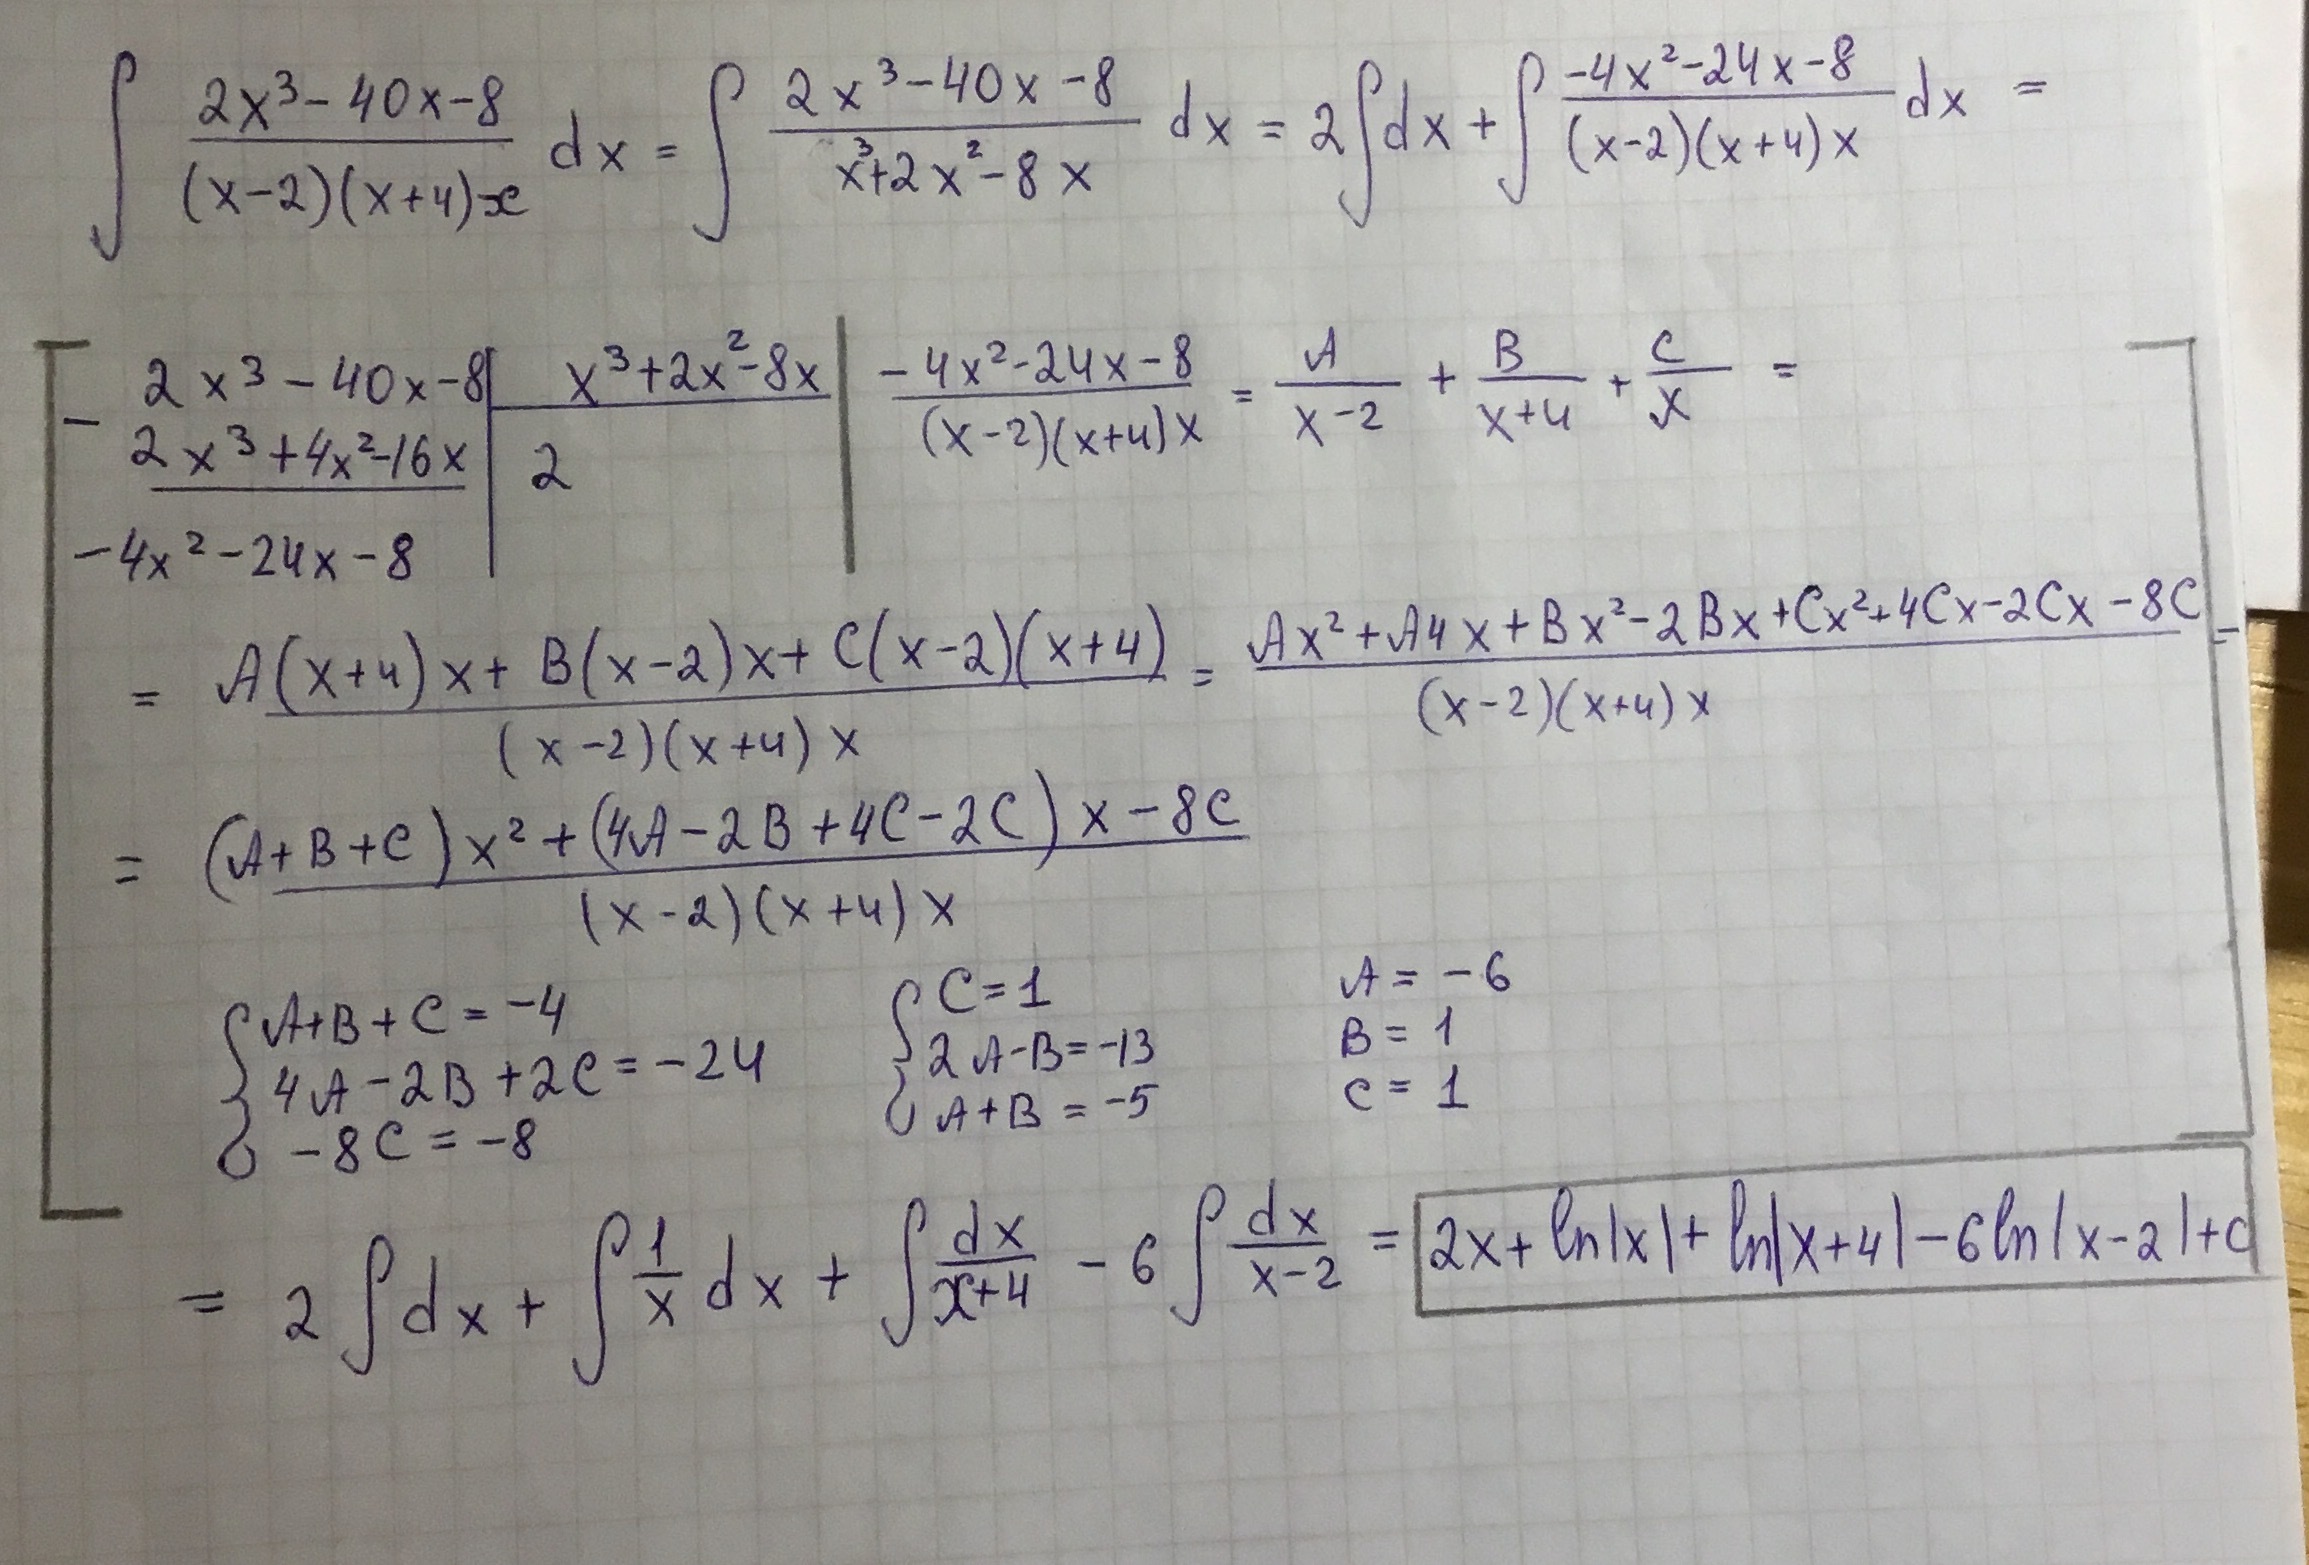 ∫ (2x³-40x-8)/((x-2)(x+4)x) dx = ∫ (2x³-40x-8)/(x³+2x²-8x) dx = 2∫dx + ∫ (-4x²-24x-8)/((x-2)(x+4)x) dx =
2x³-40x-8 | x³+2x²-8x
- 2x³+4x²-16x | 2
-4x²-24x-8
(-4x²-24x-8)/((x-2)(x+4)x) = A/(x-2) + B/(x+4) + C/x =
= (A(x+4)x + B(x-2)x + C(x-2)(x+4))/((x-2)(x+4)x) = (Ax²+A4x+Bx²-2Bx+Cx²+4Cx-2Cx-8C)/((x-2)(x+4)x) =
= ((A+B+C)x²+(4A-2B+4C-2C)x-8C)/((x-2)(x+4)x)
{ A+B+C=-4 { C=1 A=-6
4A-2B+2C=-24 2A-B=-13 B=1
-8C=-8 A+B=-5 C=1
= 2∫dx + ∫ 1/x dx + ∫ dx/(x+4) - 6∫ dx/(x-2) = 2x+ln|x|+ln|x+4|-6ln|x-2|+C